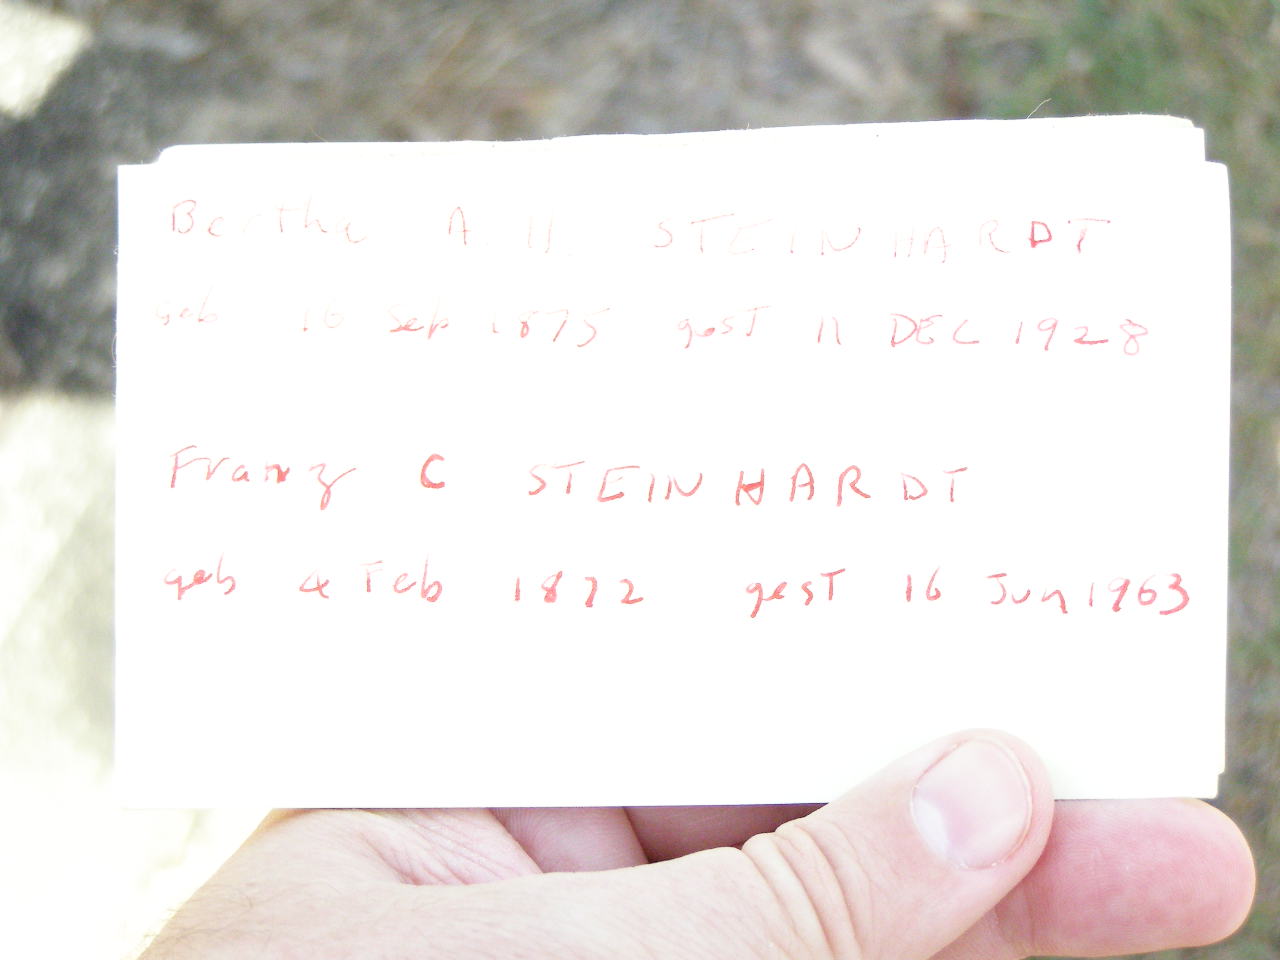 Bertha A. H. STEINHARDT
geb 16 Sep 1875 gest 11 DEC 1928
Franz C STEINHARDT
geb 4 Feb 1872 gest 16 Jun 1963